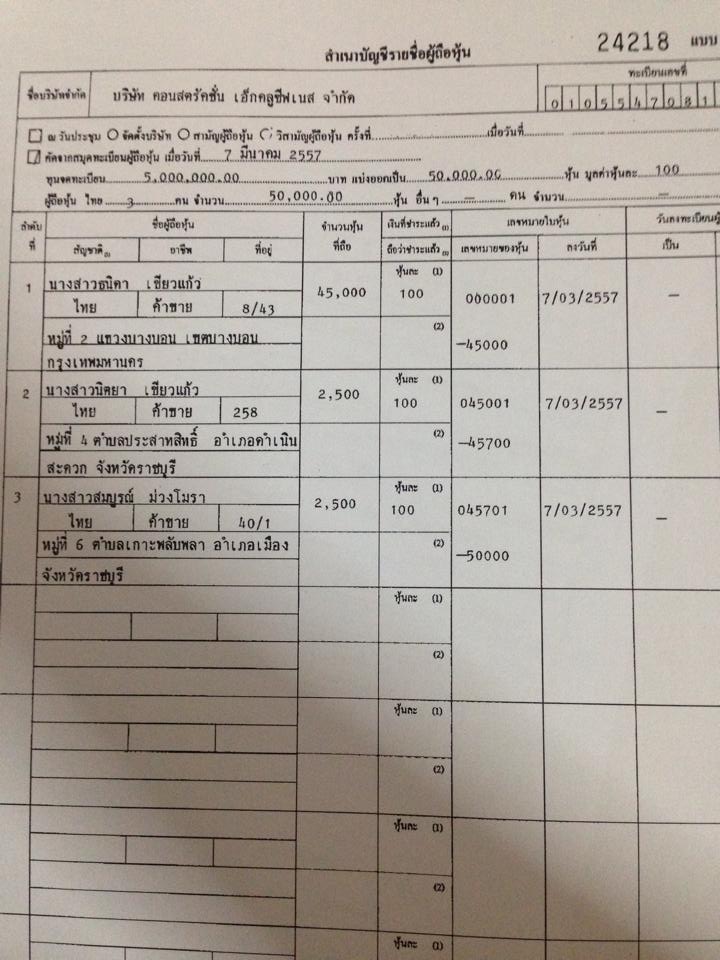 สำเนาบัญชีรายชื่อผู้ถือหุ้น
24218 แบบ
ชื่อบริษัทจำกัด บริษัท คอนสตรัคชั่น เอ็กคลูซีฟเนส จำกัด
ทะเบียนเลขที่
0 1 0 5 5 4 7 0 8 1
ณ วันประชุม จัดตั้งบริษัท สามัญผู้ถือหุ้น วิสามัญผู้ถือหุ้น ครั้งที่ เมื่อวันที่
คัดจากสมุดทะเบียนผู้ถือหุ้น เมื่อวันที่ 7 มีนาคม 2557
ทุนจดทะเบียน 5,000,000.00 บาท แบ่งออกเป็น 50,000.00 หุ้น มูลค่าหุ้นละ 100
ผู้ถือหุ้น ไทย 3 คน จำนวน 50,000.00 หุ้น อื่น ๆ — คน จำนวน —
ลำดับที่ ชื่อผู้ถือหุ้น จำนวนหุ้นที่ถือ เงินที่ชำระแล้ว (1) เลขหมายใบหุ้น วันลงทะเบียนผู้
สัญชาติ อาชีพ ที่อยู่ ถือว่าชำระแล้ว (2) เลขหมายของหุ้น ลงวันที่ เป็น
1 นางสาวธนิดา เขียวแก้ว 45,000 หุ้นละ (1) 100 000001 7/03/2557 —
ไทย ค้าขาย 8/43
หมู่ที่ 2 แขวงบางบอน เขตบางบอน (2) —45000
กรุงเทพมหานคร
2 นางสาวนิตยา เขียวแก้ว 2,500 หุ้นละ (1) 100 045001 7/03/2557 —
ไทย ค้าขาย 258
หมู่ที่ 4 ตำบลประสาทสิทธิ์ อำเภอดำเนิน (2) —45700
สะดวก จังหวัดราชบุรี
3 นางสาวสมบูรณ์ ม่วงโมรา 2,500 หุ้นละ (1) 100 045701 7/03/2557 —
ไทย ค้าขาย 40/1
หมู่ที่ 6 ตำบลเกาะพลับพลา อำเภอเมือง (2) —50000
จังหวัดราชบุรี
หุ้นละ (1)
(2)
หุ้นละ (1)
(2)
หุ้นละ (1)
(2)
หุ้นละ (1)